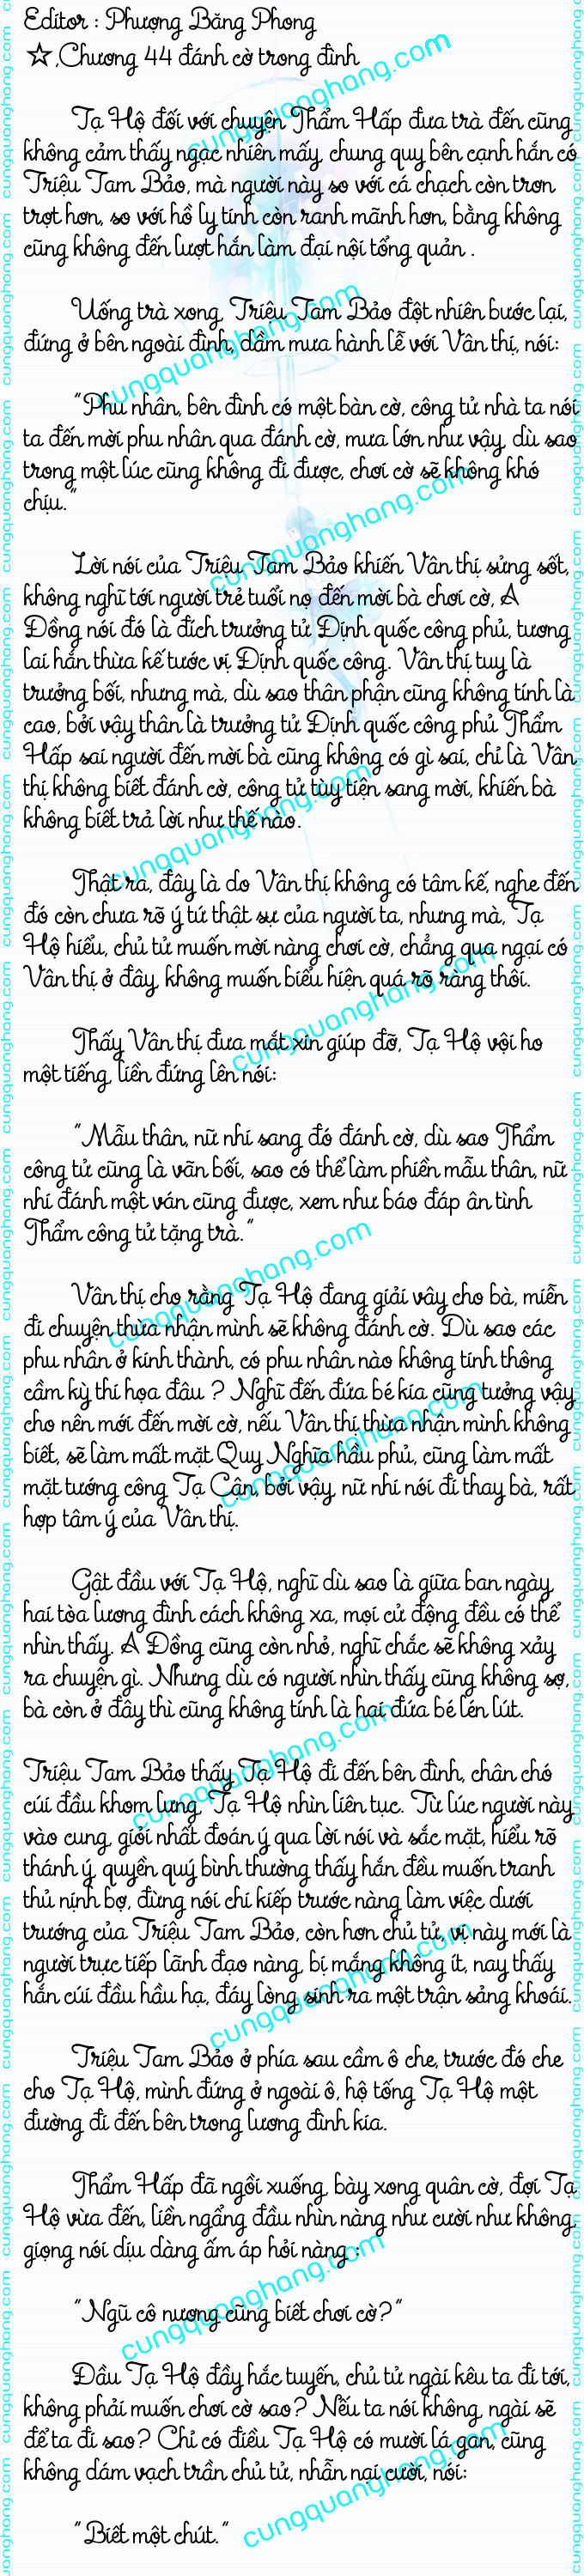 Editor : Phượng Băng Phong
☆,Chương 44 đánh cờ trong đình
Tạ Hộ đối với chuyện Thẩm Hấp đưa trà đến cũng
không cảm thấy ngạc nhiên mấy, chung quy bên cạnh hắn có
Triệu Tam Bảo, mà người này so với cá chạch còn trơn
trợt hơn, so với hồ ly tinh còn ranh mãnh hơn, bằng không
cũng không đến lượt hắn làm đại nội tổng quản .
Uống trà xong, Triệu Tam Bảo đột nhiên bước lại,
đứng ở bên ngoài đình, dầm mưa hành lễ với Vân thị, nói:
"Phu nhân, bên đình có một bàn cờ, công tử nhà ta nói
ta đến mời phu nhân qua đánh cờ, mưa lớn như vậy, dù sao
trong một lúc cũng không đi được, chơi cờ sẽ không khó
chịu."
Lời nói của Triệu Tam Bảo khiến Vân thị sửng sốt,
không nghĩ tới người trẻ tuổi nọ đến mời bà chơi cờ, A
Đồng nói đó là đích trưởng tử Định quốc công phủ, tương
lai hắn thừa kế tước vị Định quốc công. Vân thị tuy là
trưởng bối, nhưng mà, dù sao thân phận cũng không tính là
cao, bởi vậy thân là trưởng tử Định quốc công phủ Thẩm
Hấp sai người đến mời bà cũng không có gì sai, chỉ là Vân
thị không biết đánh cờ, công tử tùy tiện sang mời, khiến bà
không biết trả lời như thế nào.
Thật ra, đây là do Vân thị không có tâm kế, nghe đến
đó còn chưa rõ ý tứ thật sự của người ta, nhưng mà, Tạ
Hộ hiểu, chủ tử muốn mời nàng chơi cờ, chẳng qua ngại có
Vân thị ở đây, không muốn biểu hiện quá rõ ràng thôi.
Thấy Vân thị đưa mắt xin giúp đỡ, Tạ Hộ vội ho
một tiếng, liền đứng lên nói:
"Mẫu thân, nữ nhi sang đó đánh cờ, dù sao Thẩm
công tử cũng là vãn bối, sao có thể làm phiền mẫu thân, nữ
nhi đánh một ván cũng được, xem như báo đáp ân tình
Thẩm công tử tặng trà."
Vân thị cho rằng Tạ Hộ đang giải vây cho bà, miễn
đi chuyện thừa nhận mình sẽ không đánh cờ. Dù sao các
phu nhân ở kinh thành, có phu nhân nào không tinh thông
cầm kỳ thi họa đâu ? Nghĩ đến đứa bé kia cũng tưởng vậy
cho nên mới đến mời cờ, nếu Vân thị thừa nhận mình không
biết, sẽ làm mất mặt Quy Nghĩa hầu phủ, cũng làm mất
mặt tướng công Tạ Cận, bởi vậy, nữ nhi nói đi thay bà, rất
hợp tâm ý của Vân thị.
Gật đầu với Tạ Hộ, nghĩ dù sao là giữa ban ngày,
hai tòa lương đình cách không xa, mọi cử động đều có thể
nhìn thấy. A Đồng cũng còn nhỏ, nghĩ chắc sẽ không xảy
ra chuyện gì. Nhưng dù có người nhìn thấy cũng không sợ,
bà còn ở đây thì cũng không tính là hai đứa bé lén lút.
Triệu Tam Bảo thấy Tạ Hộ đi đến bên đình, chân chó
cúi đầu khom lưng, Tạ Hộ nhìn liên tục. Từ lúc người này
vào cung, giỏi nhất đoán ý qua lời nói và sắc mặt, hiểu rõ
thánh ý, quyền quý bình thường thấy hắn đều muốn tranh
thủ nịnh bợ, đừng nói chi kiếp trước nàng làm việc dưới
trướng của Triệu Tam Bảo, còn hơn chủ tử, vị này mới là
người trực tiếp lãnh đạo nàng, bị mắng không ít, nay thấy
hắn cúi đầu hầu hạ, đáy lòng sinh ra một trận sảng khoái.
Triệu Tam Bảo ở phía sau cầm ô che, trước đó che
cho Tạ Hộ, mình đứng ở ngoài ô, hộ tống Tạ Hộ một
đường đi đến bên trong lương đình kia.
Thẩm Hấp đã ngồi xuống, bày xong quân cờ, đợi Tạ
Hộ vừa đến, liền ngẩng đầu nhìn nàng như cười như không,
giọng nói dịu dàng ấm áp hỏi nàng :
"Ngũ cô nương cũng biết chơi cờ?"
Đầu Tạ Hộ đầy hắc tuyến, chủ tử ngài kêu ta đi tới,
không phải muốn chơi cờ sao? Nếu ta nói không, ngài sẽ
để ta đi sao? Chỉ có điều Tạ Hộ có mười lá gan, cũng
không dám vạch trần chủ tử, nhẫn nại cười, nói:
"Biết một chút."
cungquanghang.com